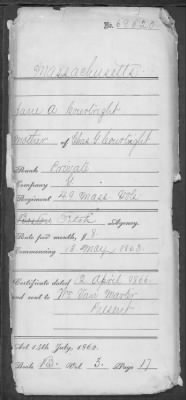 No. 69820
Massachusetts.
Jane A. Courtright
Mother of Chas G Courtright
Rank Private
Company G
Regiment 49 Mass Vols
Agency.
Rate per month, $8
Commencing 13 May, 1863.
Certificate dated 2 April 1866
and sent to Wm Van Marter
Present
Act 14th July, 1862.
Book Vol. 3. Page 17